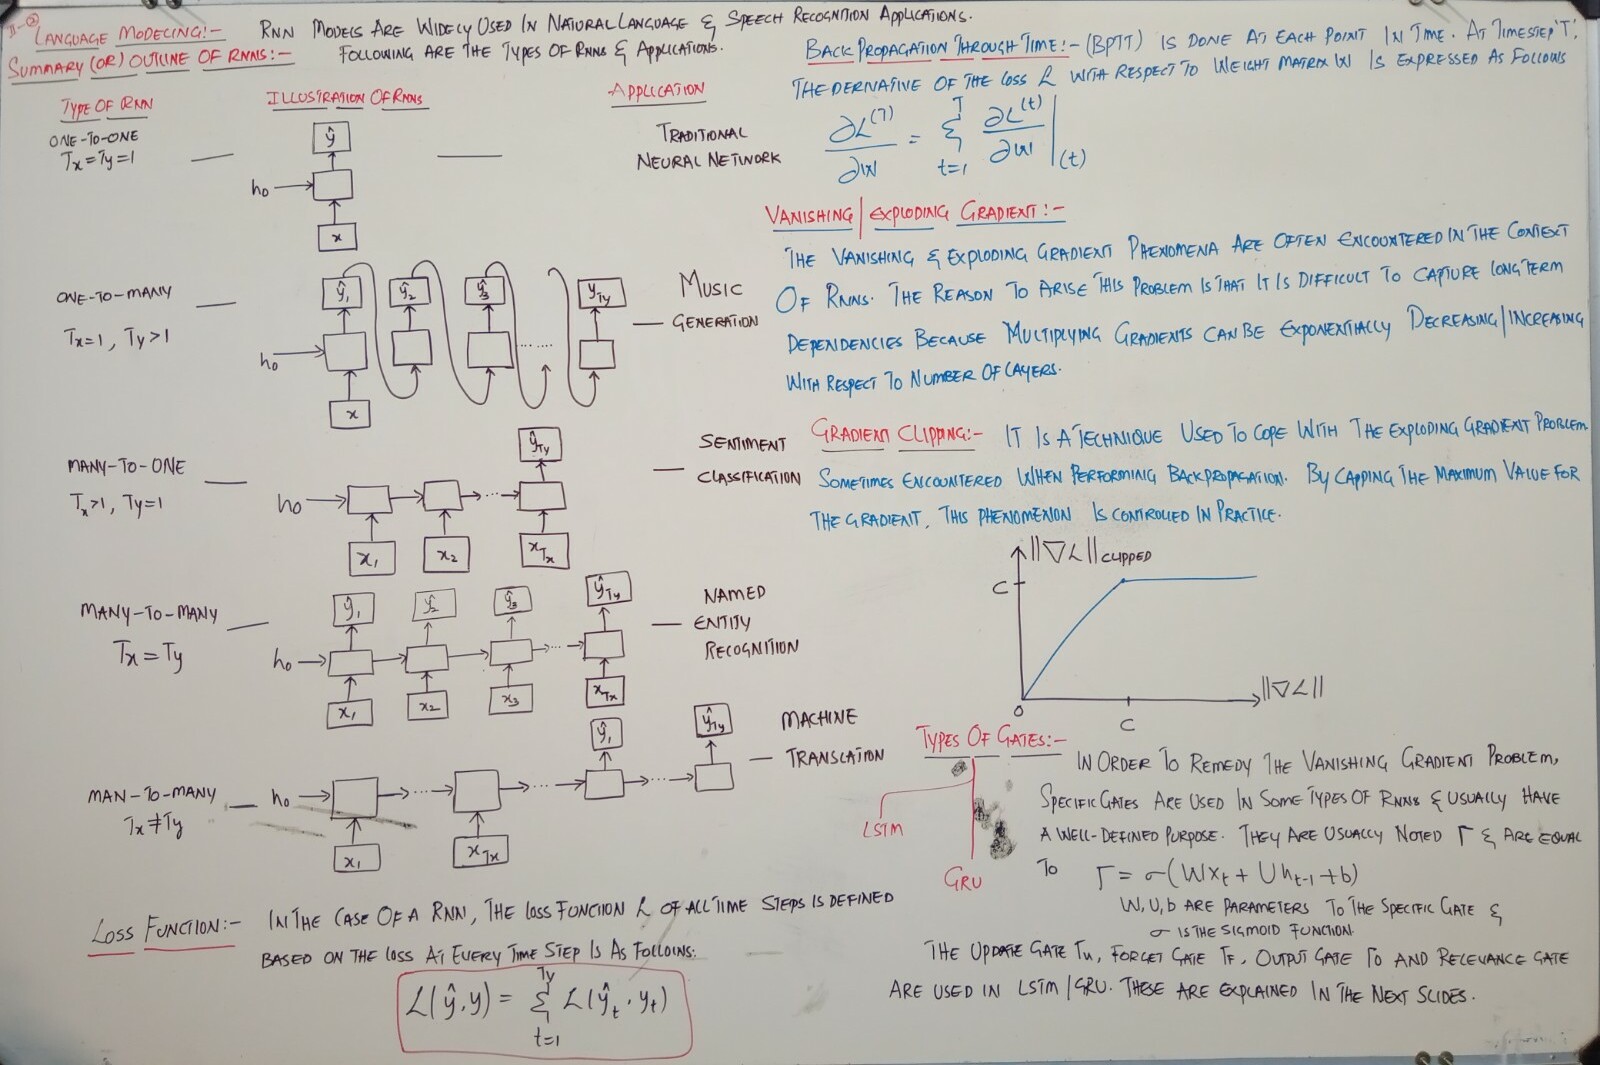 II-②
LANGUAGE MODELING:- RNN MODELS ARE WIDELY USED IN NATURAL LANGUAGE & SPEECH RECOGNITION APPLICATIONS.
SUMMARY (OR) OUTLINE OF RNNS:- FOLLOWING ARE THE TYPES OF RNNS & APPLICATIONS.
TYPE OF RNN ILLUSTRATION OF RNNS APPLICATION
ONE-TO-ONE
Tx=Ty=1
ŷ
h₀
x
TRADITIONAL
NEURAL NETWORK
ONE-TO-MANY
Tx=1, Ty>1
ŷ₁ ŷ₂ ŷ₃ yTy
h₀ ......
x
MUSIC
GENERATION
MANY-TO-ONE
Tx>1, Ty=1
ŷTy
h₀ ...
x₁ x₂ xTx
SENTIMENT
CLASSIFICATION
MANY-TO-MANY
Tx=Ty
ŷ₁ ŷ₂ ŷ₃ ŷTy
h₀ ...
x₁ x₂ x₃ xTx
NAMED
ENTITY
RECOGNITION
MAN-TO-MANY
Tx≠Ty
ŷ₁ ŷTy
h₀ ... ... ...
x₁ xTx
MACHINE
TRANSLATION
LOSS FUNCTION:- IN THE CASE OF A RNN, THE LOSS FUNCTION L OF ALL TIME STEPS IS DEFINED
BASED ON THE LOSS AT EVERY TIME STEP IS AS FOLLOWS:
L(ŷ,y) = Σ_{t=1}^{Ty} L(ŷt, yt)
BACK PROPAGATION THROUGH TIME:- (BPTT) IS DONE AT EACH POINT IN TIME. AT TIMESTEP 'T',
THE DERIVATIVE OF THE LOSS L WITH RESPECT TO WEIGHT MATRIX W IS EXPRESSED AS FOLLOWS
∂L^(T)/∂W = Σ_{t=1}^{T} ∂L^(t)/∂W |(t)
VANISHING/EXPLODING GRADIENT:-
THE VANISHING & EXPLODING GRADIENT PHENOMENA ARE OFTEN ENCOUNTERED IN THE CONTEXT
OF RNNS. THE REASON TO ARISE THIS PROBLEM IS THAT IT IS DIFFICULT TO CAPTURE LONG TERM
DEPENDENCIES BECAUSE MULTIPLYING GRADIENTS CAN BE EXPONENTIALLY DECREASING/INCREASING
WITH RESPECT TO NUMBER OF LAYERS.
GRADIENT CLIPPING:- IT IS A TECHNIQUE USED TO COPE WITH THE EXPLODING GRADIENT PROBLEM
SOMETIMES ENCOUNTERED WHEN PERFORMING BACKPROPAGATION. BY CAPPING THE MAXIMUM VALUE FOR
THE GRADIENT, THIS PHENOMENON IS CONTROLLED IN PRACTICE.
||∇L|| CLIPPED
C
||∇L||
0 C
TYPES OF GATES:-
LSTM
GRU
IN ORDER TO REMEDY THE VANISHING GRADIENT PROBLEM,
SPECIFIC GATES ARE USED IN SOME TYPES OF RNNS & USUALLY HAVE
A WELL-DEFINED PURPOSE. THEY ARE USUALLY NOTED Γ & ARE EQUAL
TO Γ = σ(Wxt + Uht-1 + b)
W, U, b ARE PARAMETERS TO THE SPECIFIC GATE &
σ IS THE SIGMOID FUNCTION.
THE UPDATE GATE Γu, FORGET GATE ΓF, OUTPUT GATE Γo AND RELEVANCE GATE
ARE USED IN LSTM/GRU. THESE ARE EXPLAINED IN THE NEXT SLIDES.